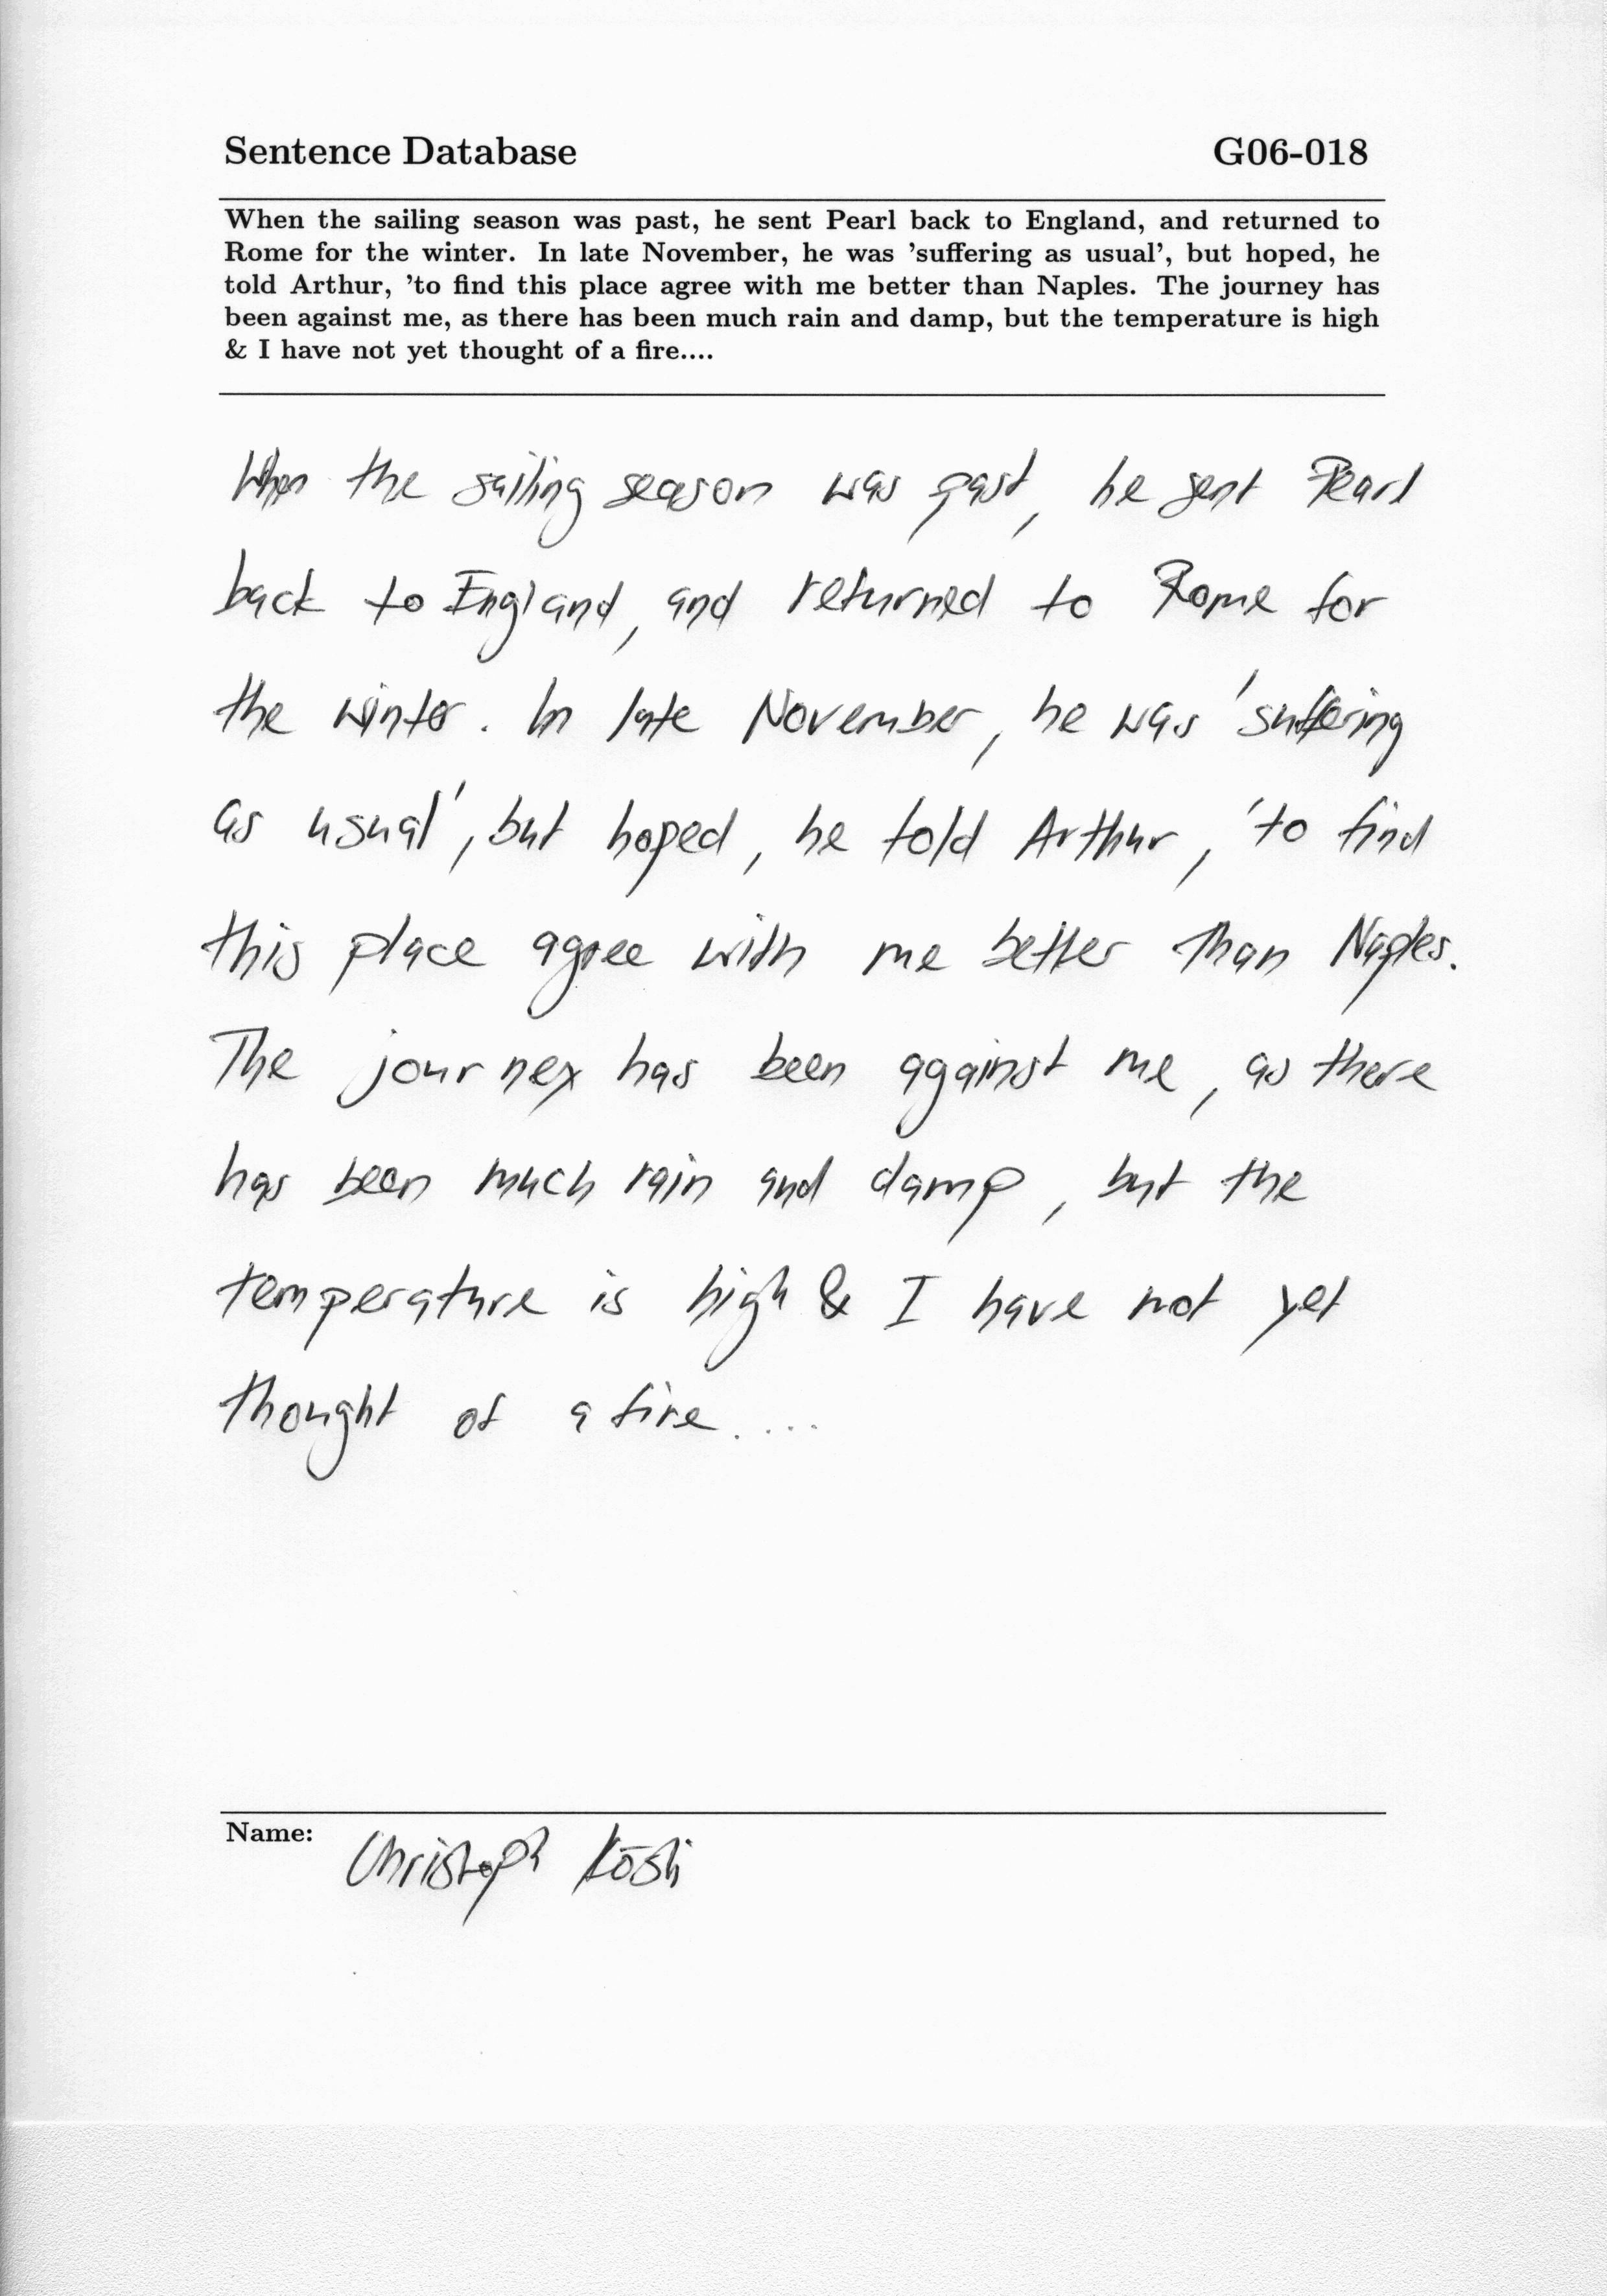 Sentence Database G06-018
When the sailing season was past, he sent Pearl back to England, and returned to
Rome for the winter. In late November, he was 'suffering as usual', but hoped, he
told Arthur, 'to find this place agree with me better than Naples. The journey has
been against me, as there has been much rain and damp, but the temperature is high
& I have not yet thought of a fire....
When the sailing season was past, he sent Pearl
back to England, and returned to Rome for
the winter. In late November, he was 'suffering
as usual', but hoped, he told Arthur, 'to find
this place agree with me better than Naples.
The journey has been against me, as there
has been much rain and damp, but the
temperature is high & I have not yet
thought of a fire....
Name: Christoph